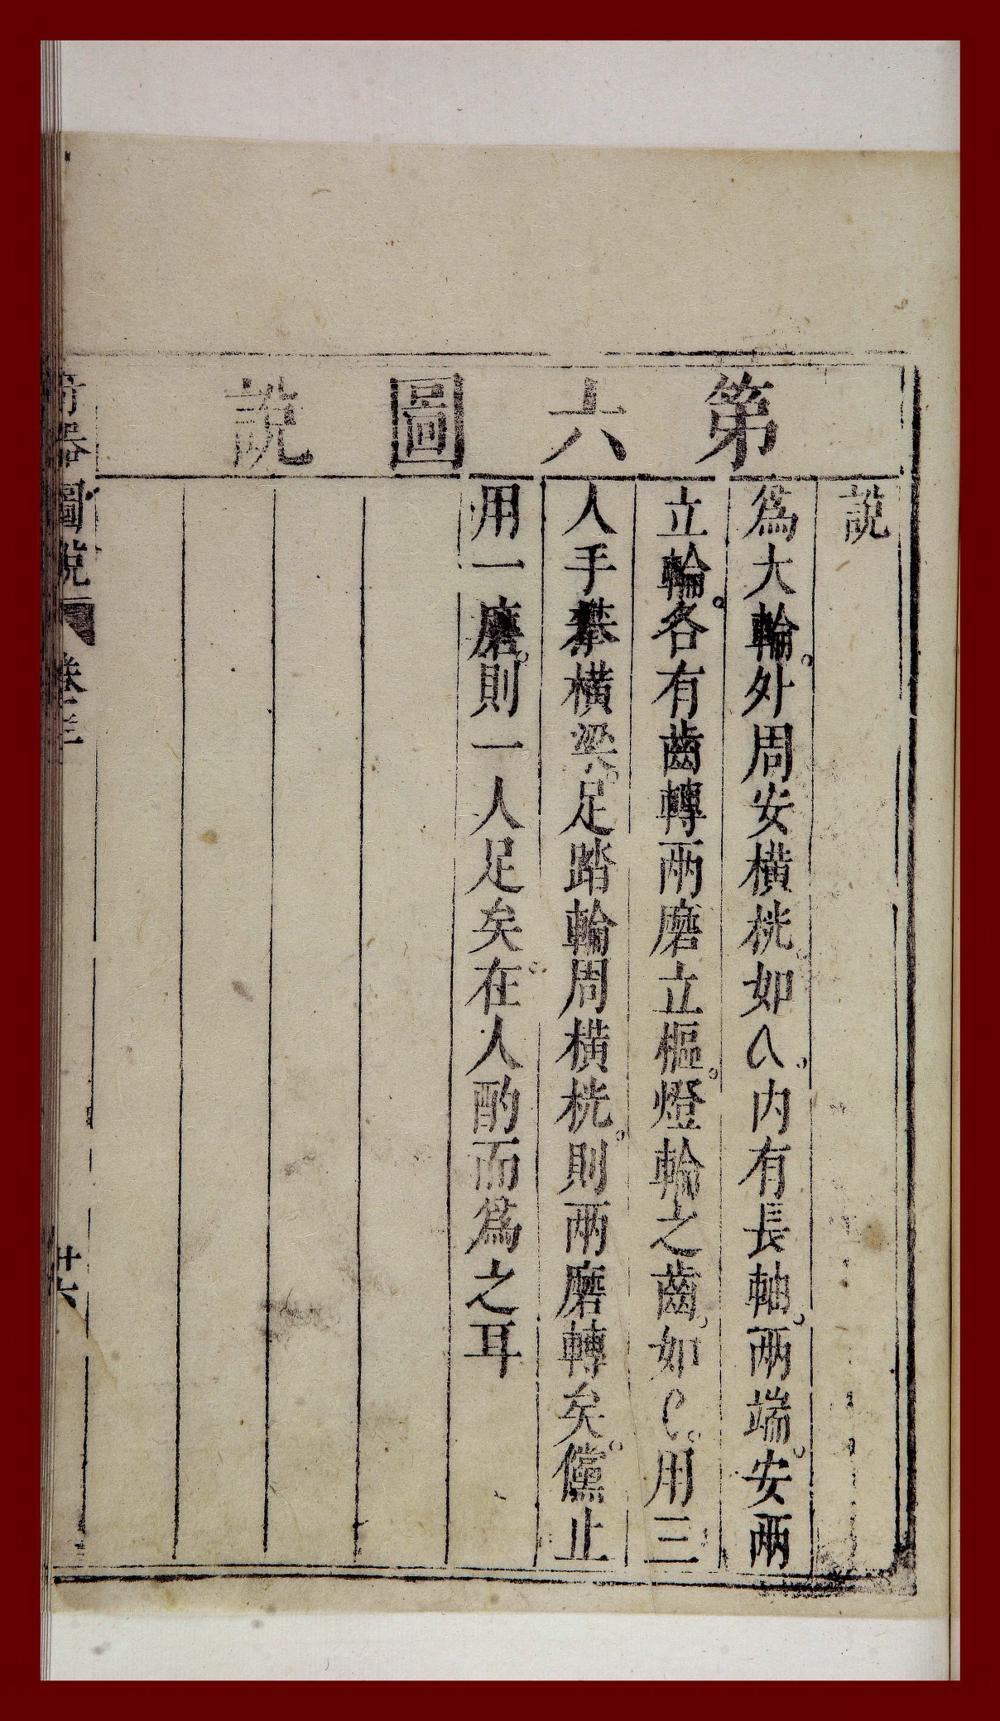 第六圖說
說
爲大輪。外周安橫桄。如A。内有長軸。兩端。安兩
立輪。各有齒轉兩磨立樞。燈輪之齒。如C。用三
人手攀橫梁。足踏輪周橫桄。則兩磨轉矣。儻止
用一磨。則一人足矣。在人酌而爲之耳
奇器圖說
卷三
廿六